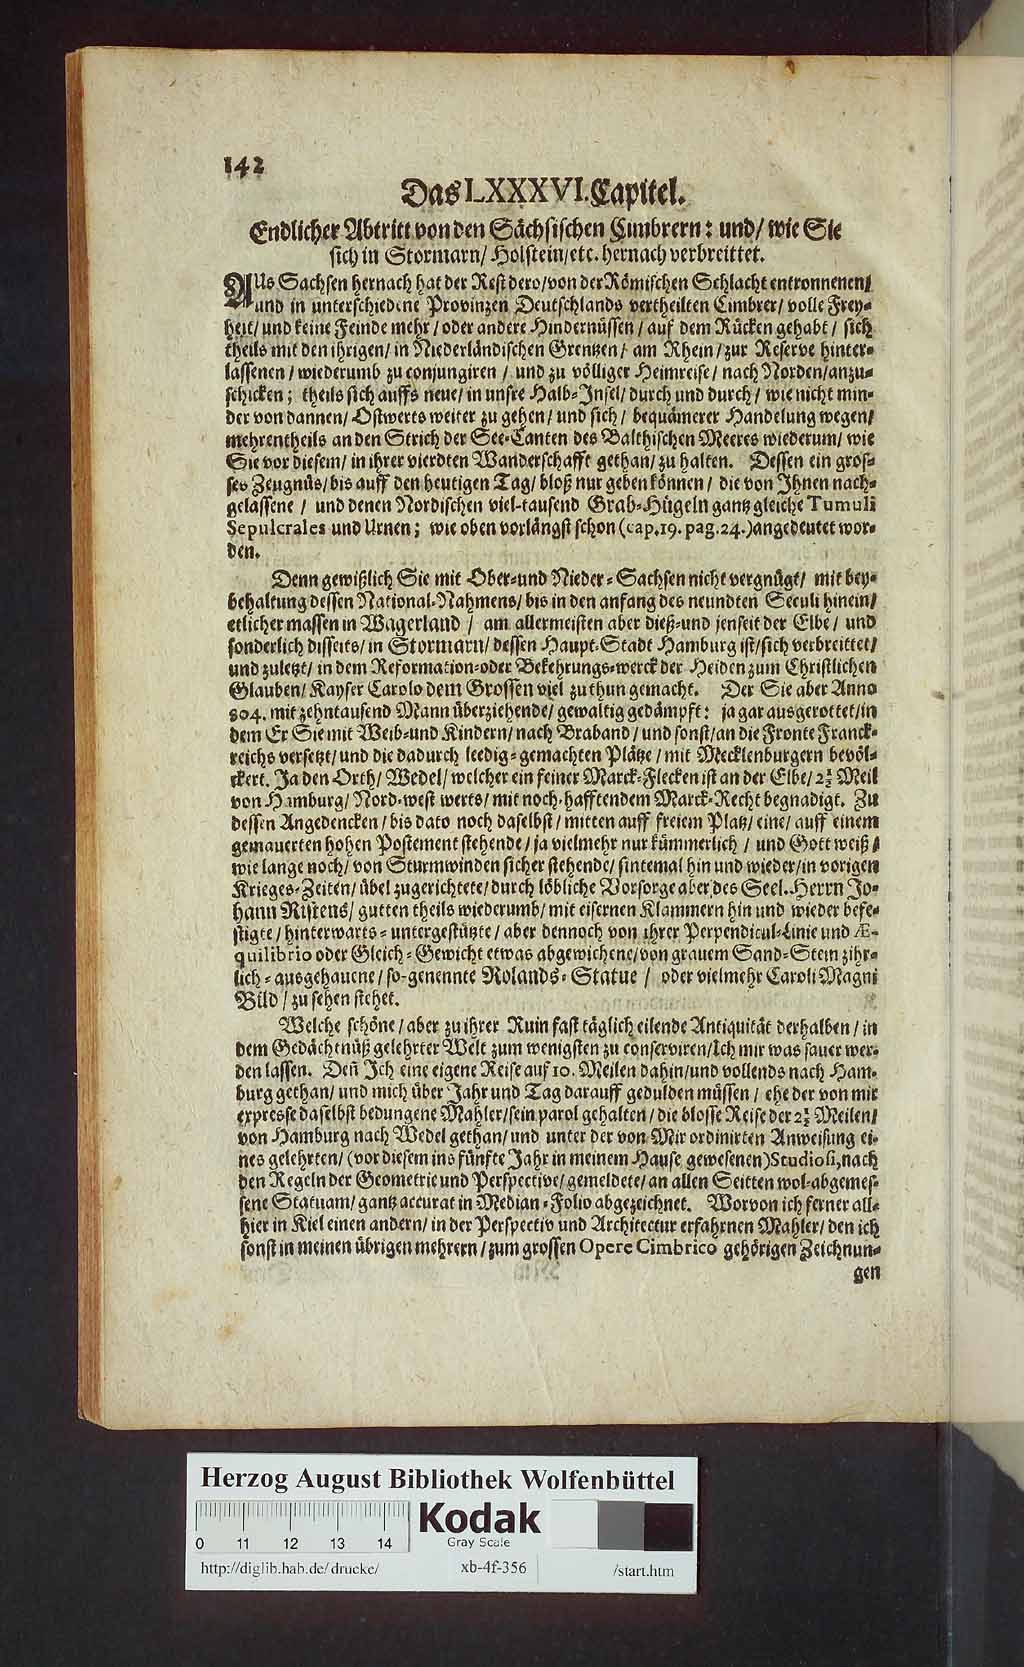 142
Das LXXXVI. Capitel.
Endlicher Abtritt von den Sächsischen Cimbrern: und/ wie Sie
sich in Stormarn/ Holstein/ etc. hernach verbreittet.
AUs Sachsen hernach hat der Rest dero/ von der Römischen Schlacht entronnenen/
und in unterschiedene Provinzen Deutschlands vertheilten Cimbrer/ volle Frey-
heit/ und keine Feinde mehr/ oder andere Hindernüssen/ auf dem Rücken gehabt/ sich
theils mit den ihrigen/ in Niederländischen Grentzen/ am Rhein/ zur Reserve hinter-
lassenen/ wiederumb zu conjungiren/ und zu völliger Heimreise/ nach Norden/ anzu-
schicken; theils sich auffs neue/ in unsre Halb-Insel/ durch und durch/ wie nicht min-
der von dannen/ Ostwerts weiter zu gehen/ und sich/ bequämerer Handelung wegen/
mehrentheils an den Strich der See-Canten des Balthischen Meeres wiederum/ wie
Sie vor diesem/ in ihrer vierdten Wanderschafft gethan/ zu halten. Dessen ein gros-
ses Zeugnüs/ bis auff den heutigen Tag/ bloß nur geben können/ die von Ihnen nach-
gelassene/ und denen Nordischen viel-tausend Grab-Hügeln gantz gleiche Tumuli
Sepulcrales und Urnen; wie oben vorlängst schon (cap. 19. pag. 24.) angedeutet wor-
den.
Denn gewißlich Sie mit Ober- und Nieder-Sachsen nicht vergnügt/ mit bey-
behaltung dessen National-Nahmens/ bis in den anfang des neundten Seculi hinein/
etlicher massen in Wagerland/ am allermeisten aber dieß- und jenseit der Elbe/ und
sonderlich disseits/ in Stormarn/ dessen Haupt-Stadt Hamburg ist/ sich verbreittet/
und zuletzt/ in dem Reformation- oder Bekehrungs-werck der Heiden zum Christlichen
Glauben/ Kayser Carolo dem Grossen viel zu thun gemacht. Der Sie aber Anno
804. mit zehntausend Mann überziehende/ gewaltig gedämpft: ja gar ausgerottet/ in
dem Er Sie mit Weib- und Kindern/ nach Braband/ und sonst/ an die Fronte Franck-
reichs versetzt/ und die dadurch leedig-gemachten Plätze/ mit Mecklenburgern bevöl-
ckert. Ja den Orth/ Wedel/ welcher ein feiner Marck-Flecken ist an der Elbe/ 2½ Meil
von Hamburg/ Nord-west werts/ mit noch-hafftendem Marck-Recht begnadigt. Zu
dessen Angedencken/ bis dato noch daselbst/ mitten auff freiem Platz/ eine/ auff einem
gemauerten hohen Postement stehende/ ja vielmehr nur kümmerlich/ und Gott weiß/
wie lange noch/ von Sturmwinden sicher stehende/ sintemal hin und wieder/ in vorigen
Krieges-Zeiten/ übel zugerichtete/ durch löbliche Vorsorge aber des Seel. Herrn Jo-
hann Ristens/ gutten theils wiederumb/ mit eisernen Klammern hin und wieder befe-
stigte/ hinterwarts-untergestützte/ aber dennoch von ihrer Perpendicul-Linie und Æ-
quilibrio oder Gleich-Gewicht etwas abgewichene/ von grauem Sand-Stein zihr-
lich-ausgehauene/ so-genennte Rolands-Statue/ oder vielmehr Caroli Magni
Bild/ zu sehen stehet.
Welche schöne/ aber zu ihrer Ruin fast täglich eilende Antiquität derhalben/ in
dem Gedächtnüß gelehrter Welt zum wenigsten zu conserviren/ Ich mir was sauer wer-
den lassen. Den̄ Ich eine eigene Reise auf 10. Meilen dahin/ und vollends nach Ham-
burg gethan/ und mich über Jahr und Tag darauff gedulden müssen/ ehe der von mir
expresse daselbst bedungene Mahler/ sein parol gehalten/ die blosse Reise der 2½ Meilen/
von Hamburg nach Wedel gethan/ und unter der von Mir ordinirten Anweisung ei-
nes gelehrten/ (vor diesem ins fünfte Jahr in meinem Hause gewesenen) Studiosi, nach
den Regeln der Geometrie und Perspective/ gemeldete/ an allen Seitten wol-abgemes-
sene Statuam/ gantz accurat in Median-Folio abgezeichnet. Worvon ich ferner all-
hier in Kiel einen andern/ in der Perspectiv und Architectur erfahrnen Mahler/ den ich
sonst in meinen übrigen mehrern/ zum grossen Opere Cimbrico gehörigen Zeichnun-
gen
Herzog August Bibliothek Wolfenbüttel
Kodak
Gray Scale
0 11 12 13 14
http://diglib.hab.de/drucke/ xb-4f-356 /start.htm